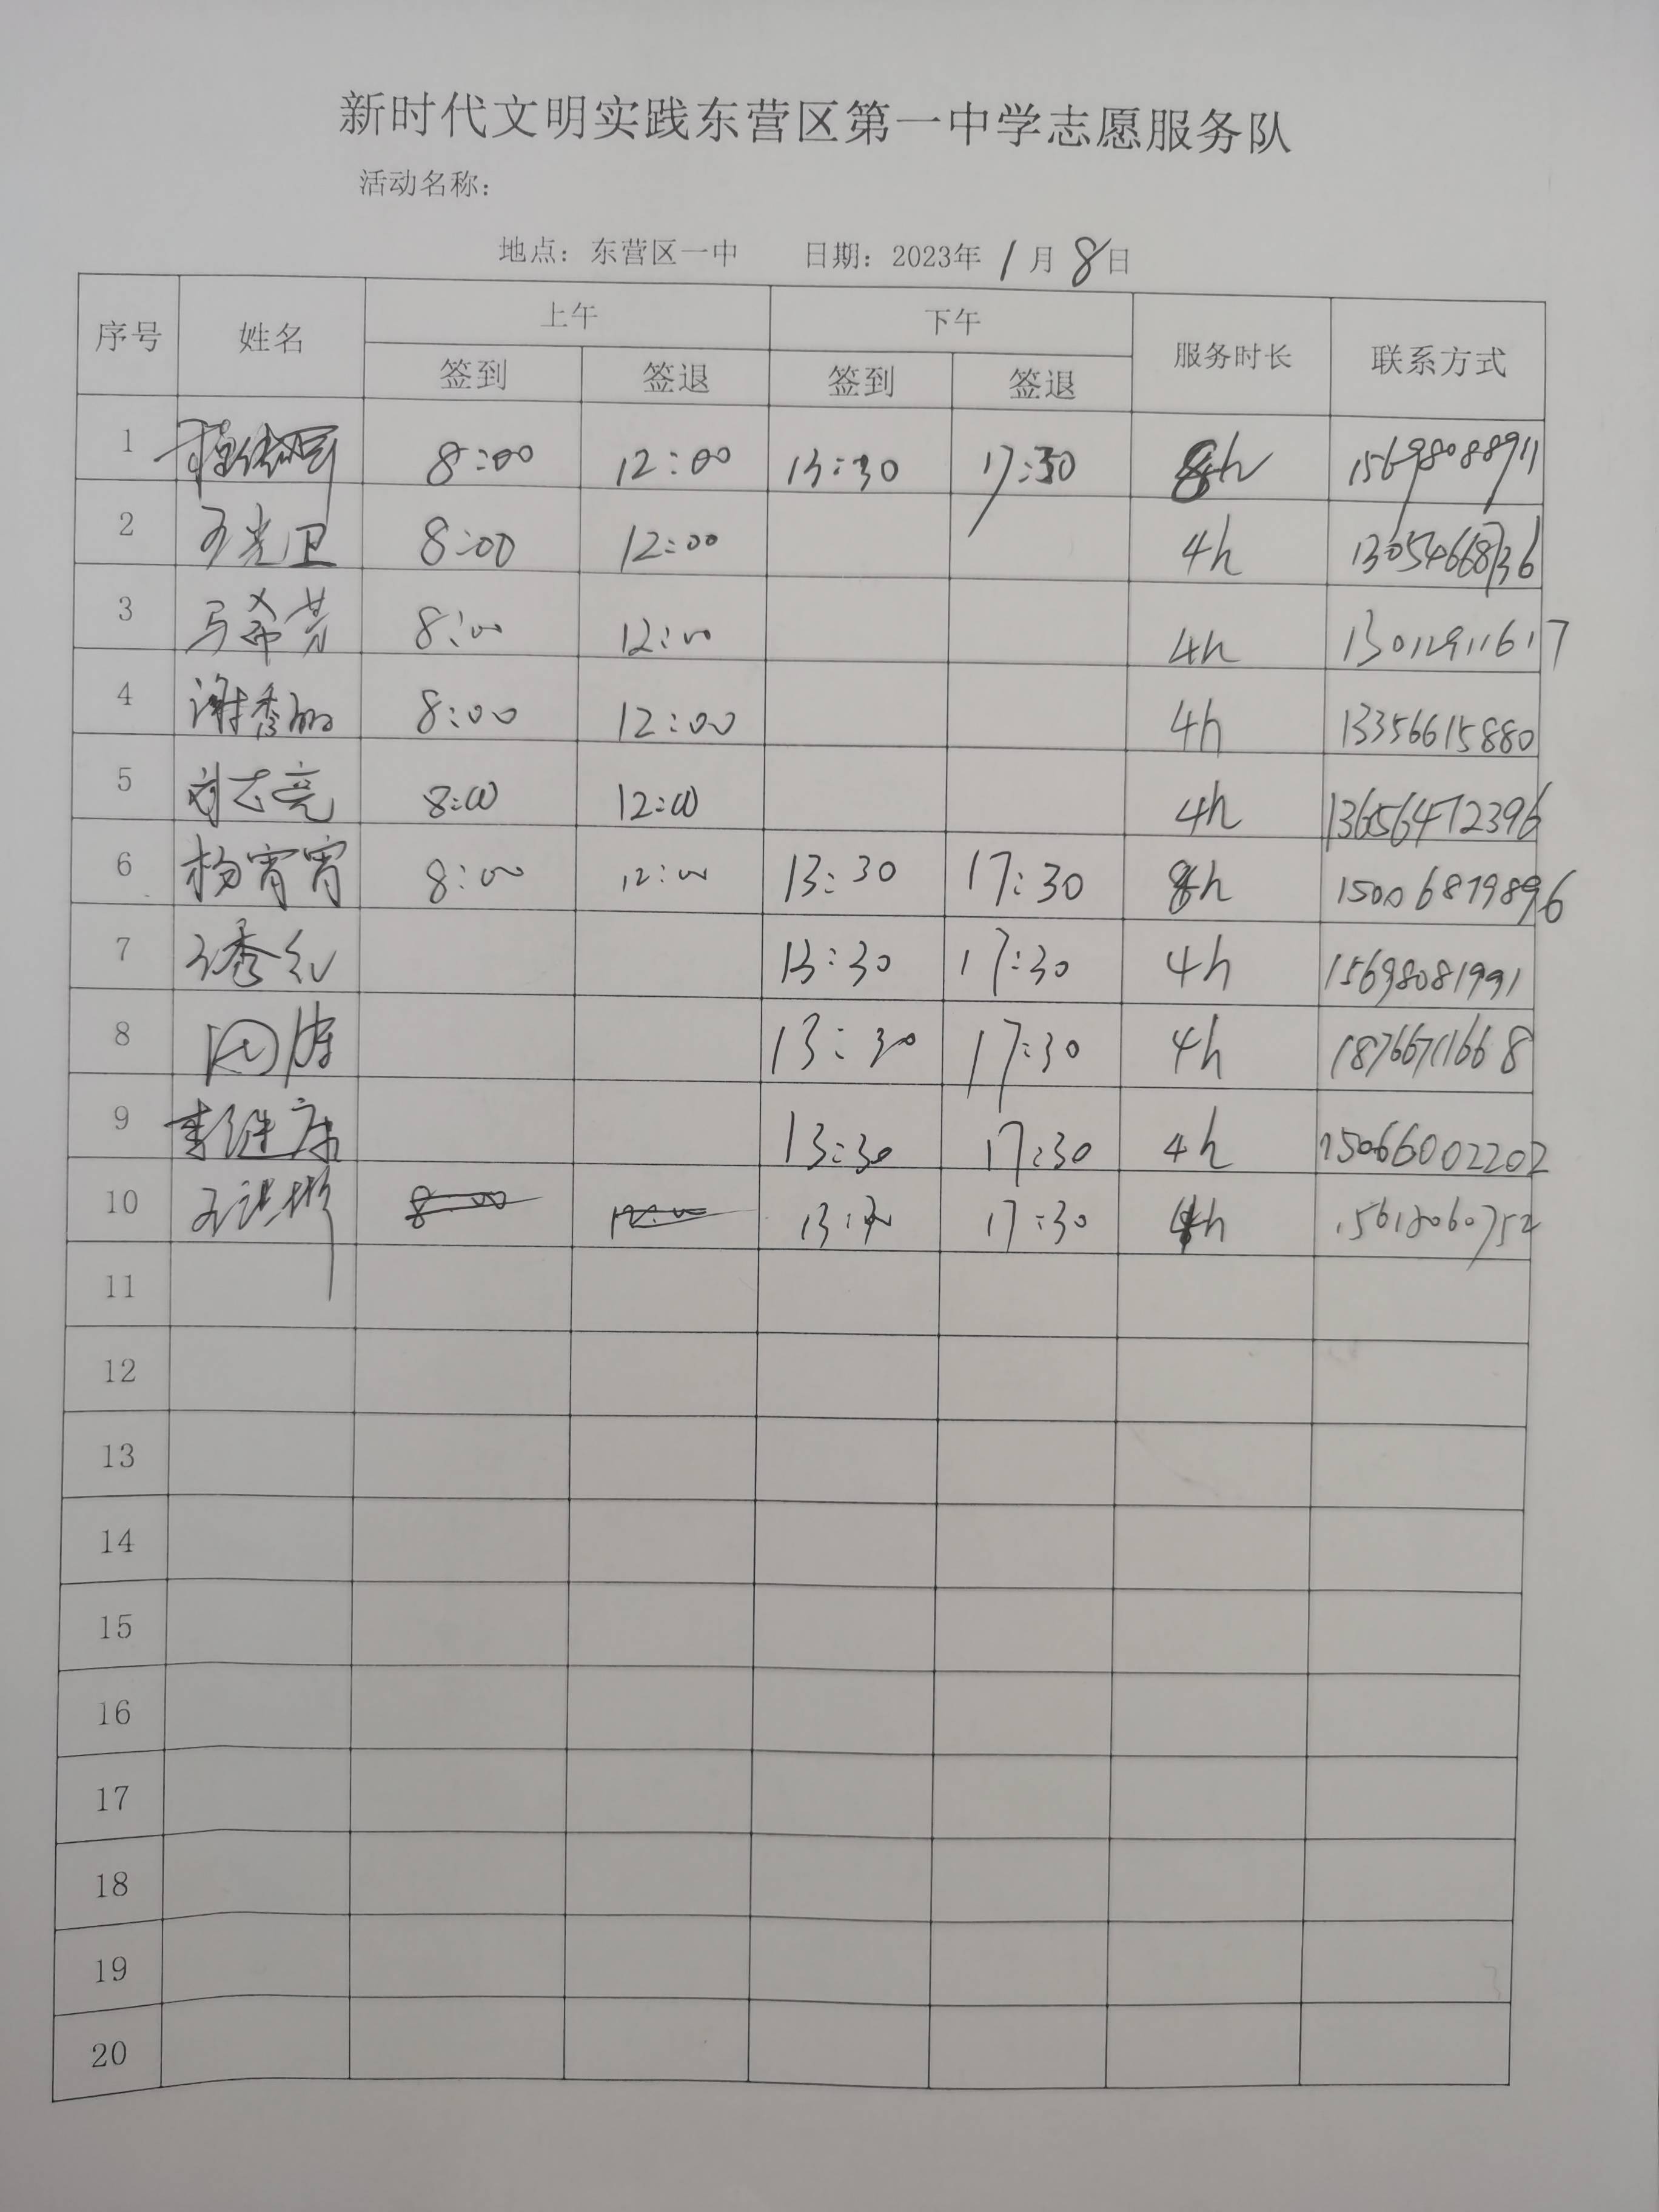 新时代文明实践东营区第一中学志愿服务队
活动名称:
地点: 东营区一中 日期: 2023年 1月 8日
序号 姓名 上午 下午 服务时长 联系方式
签到 签退 签到 签退
1 8:00 12:00 13:30 17:30 8h 15698088911
2 王光卫 8:00 12:00 4h 13054668736
3 马希芳 8:00 12:00 4h 13012911617
4 谢秀丽 8:00 12:00 4h 13356615880
5 刘志亮 8:00 12:00 4h 13656472396
6 杨宵宵 8:00 12:00 13:30 17:30 8h 15006819896
7 王秀红 13:30 17:30 4h 15698081991
8 周涛 13:30 17:30 4h 18766711668
9 李继康 13:30 17:30 4h 15066002202
10 8:00 12:00 13:30 17:30 4h 15618060752
11
12
13
14
15
16
17
18
19
20